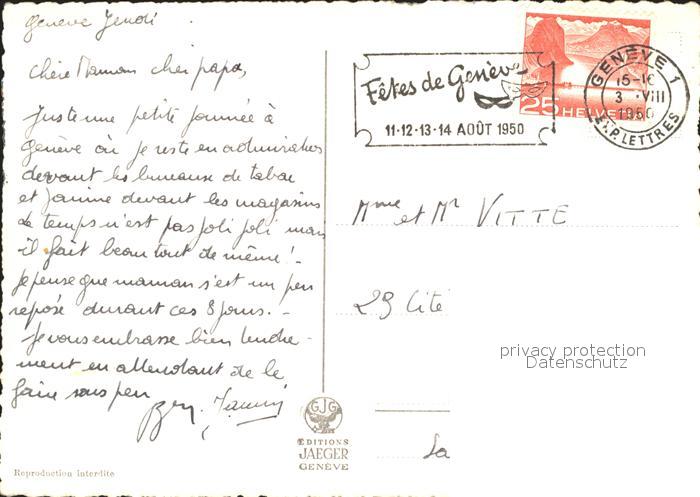 Genève Jeudi
Chère Maman cher papa,
Juste une petite journée à
Genève où je reste en admiration
devant les bureaux de tabac
et Janine devant les magasins
Le temps n'est pas joli joli mais
il fait beau tout de même ! -
Je pense que maman s'est un peu
reposé durant ces 8 jours. -
Je vous embrasse bien tendre-
ment en attendant de le
faire sous peu
Fêtes de Genève
11·12·13·14 AOÛT 1950
25 HELVETIA
GENÈVE 1
3 VIII
1950
EXP. LETTRES
Mme et Mr VITTE
29 Cité
privacy protection
Datenschutz
La
GJG
ÉDITIONS
JAEGER
GENÈVE
Reproduction interdite